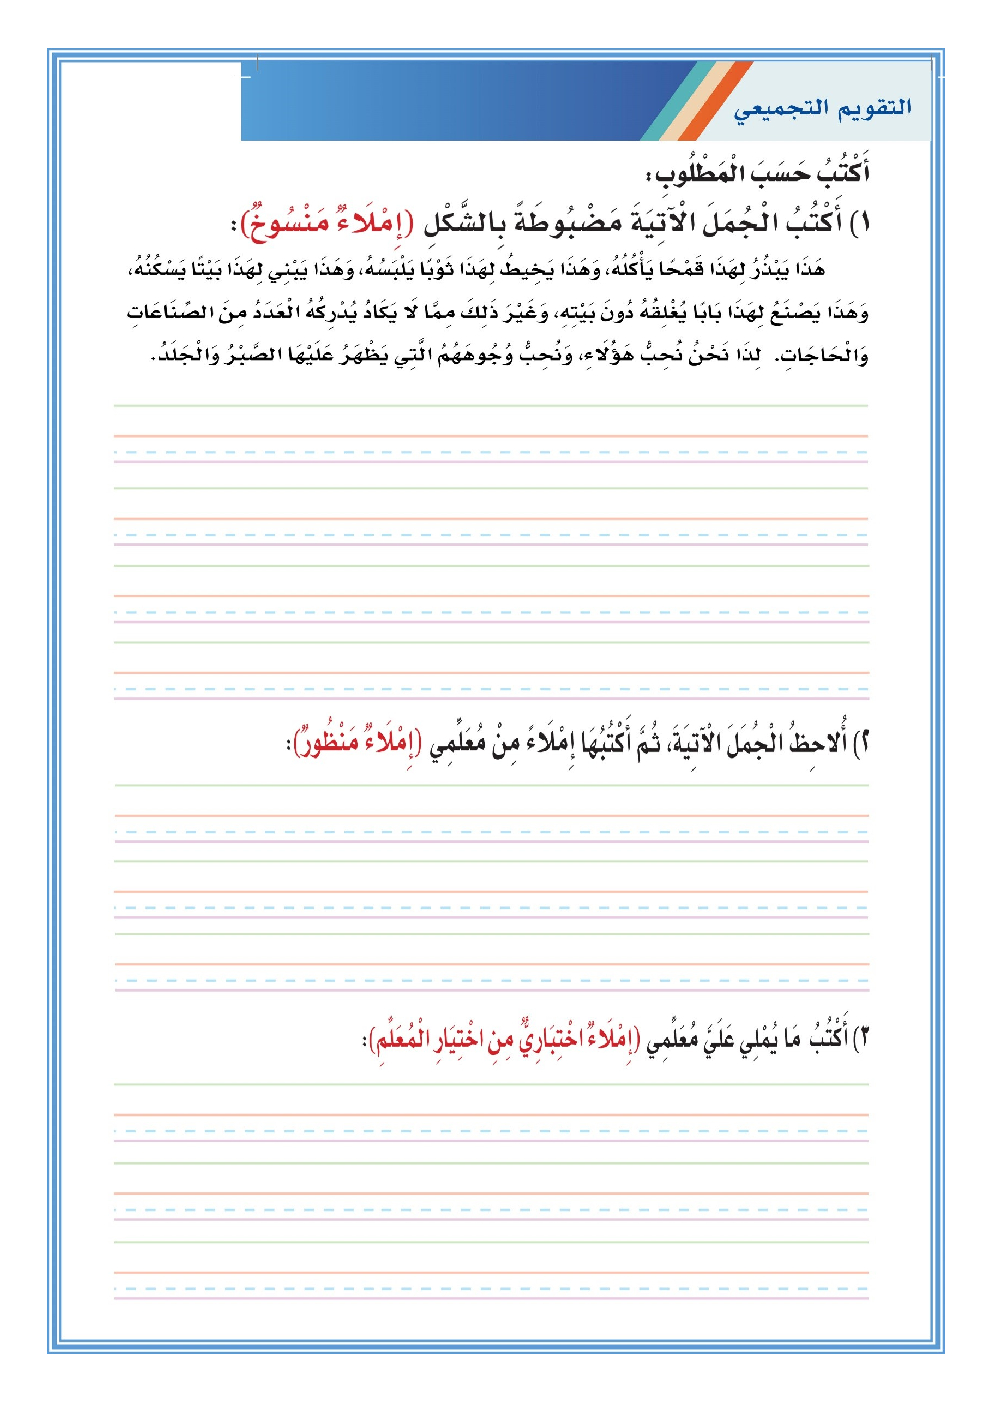 التقويم التجميعي
أَكْتُبُ حَسَبَ الْمَطْلُوبِ:
١) أَكْتُبُ الْجُمَلَ الْآتِيَةَ مَضْبُوطَةً بِالشَّكْلِ (إِمْلَاءٌ مَنْسُوخٌ):
هَذَا يَبْذُرُ لِهَذَا قَمْحًا يَأْكُلُهُ، وَهَذَا يَخِيطُ لِهَذَا ثَوْبًا يَلْبَسُهُ، وَهَذَا يَبْنِي لِهَذَا بَيْتًا يَسْكُنُهُ،
وَهَذَا يَصْنَعُ لِهَذَا بَابًا يُغْلِقُهُ دُونَ بَيْتِهِ، وَغَيْرَ ذَلِكَ مِمَّا لَا يَكَادُ يُدْرِكُهُ الْعَدَدُ مِنَ الصِّنَاعَاتِ
وَالْحَاجَاتِ. لِذَا نَحْنُ نُحِبُّ هَؤُلَاءِ، وَنُحِبُّ وُجُوهَهُمُ الَّتِي يَظْهَرُ عَلَيْهَا الصَّبْرُ وَالْجَلَدُ.
٢) أُلاحِظُ الْجُمَلَ الْآتِيَةَ، ثُمَّ أَكْتُبُهَا إِمْلَاءً مِنْ مُعَلِّمِي (إِمْلَاءٌ مَنْظُورٌ):
٣) أَكْتُبُ مَا يُمْلِي عَلَيَّ مُعَلِّمِي (إِمْلَاءٌ اخْتِبَارِيٌّ مِنِ اخْتِيَارِ الْمُعَلِّمِ):